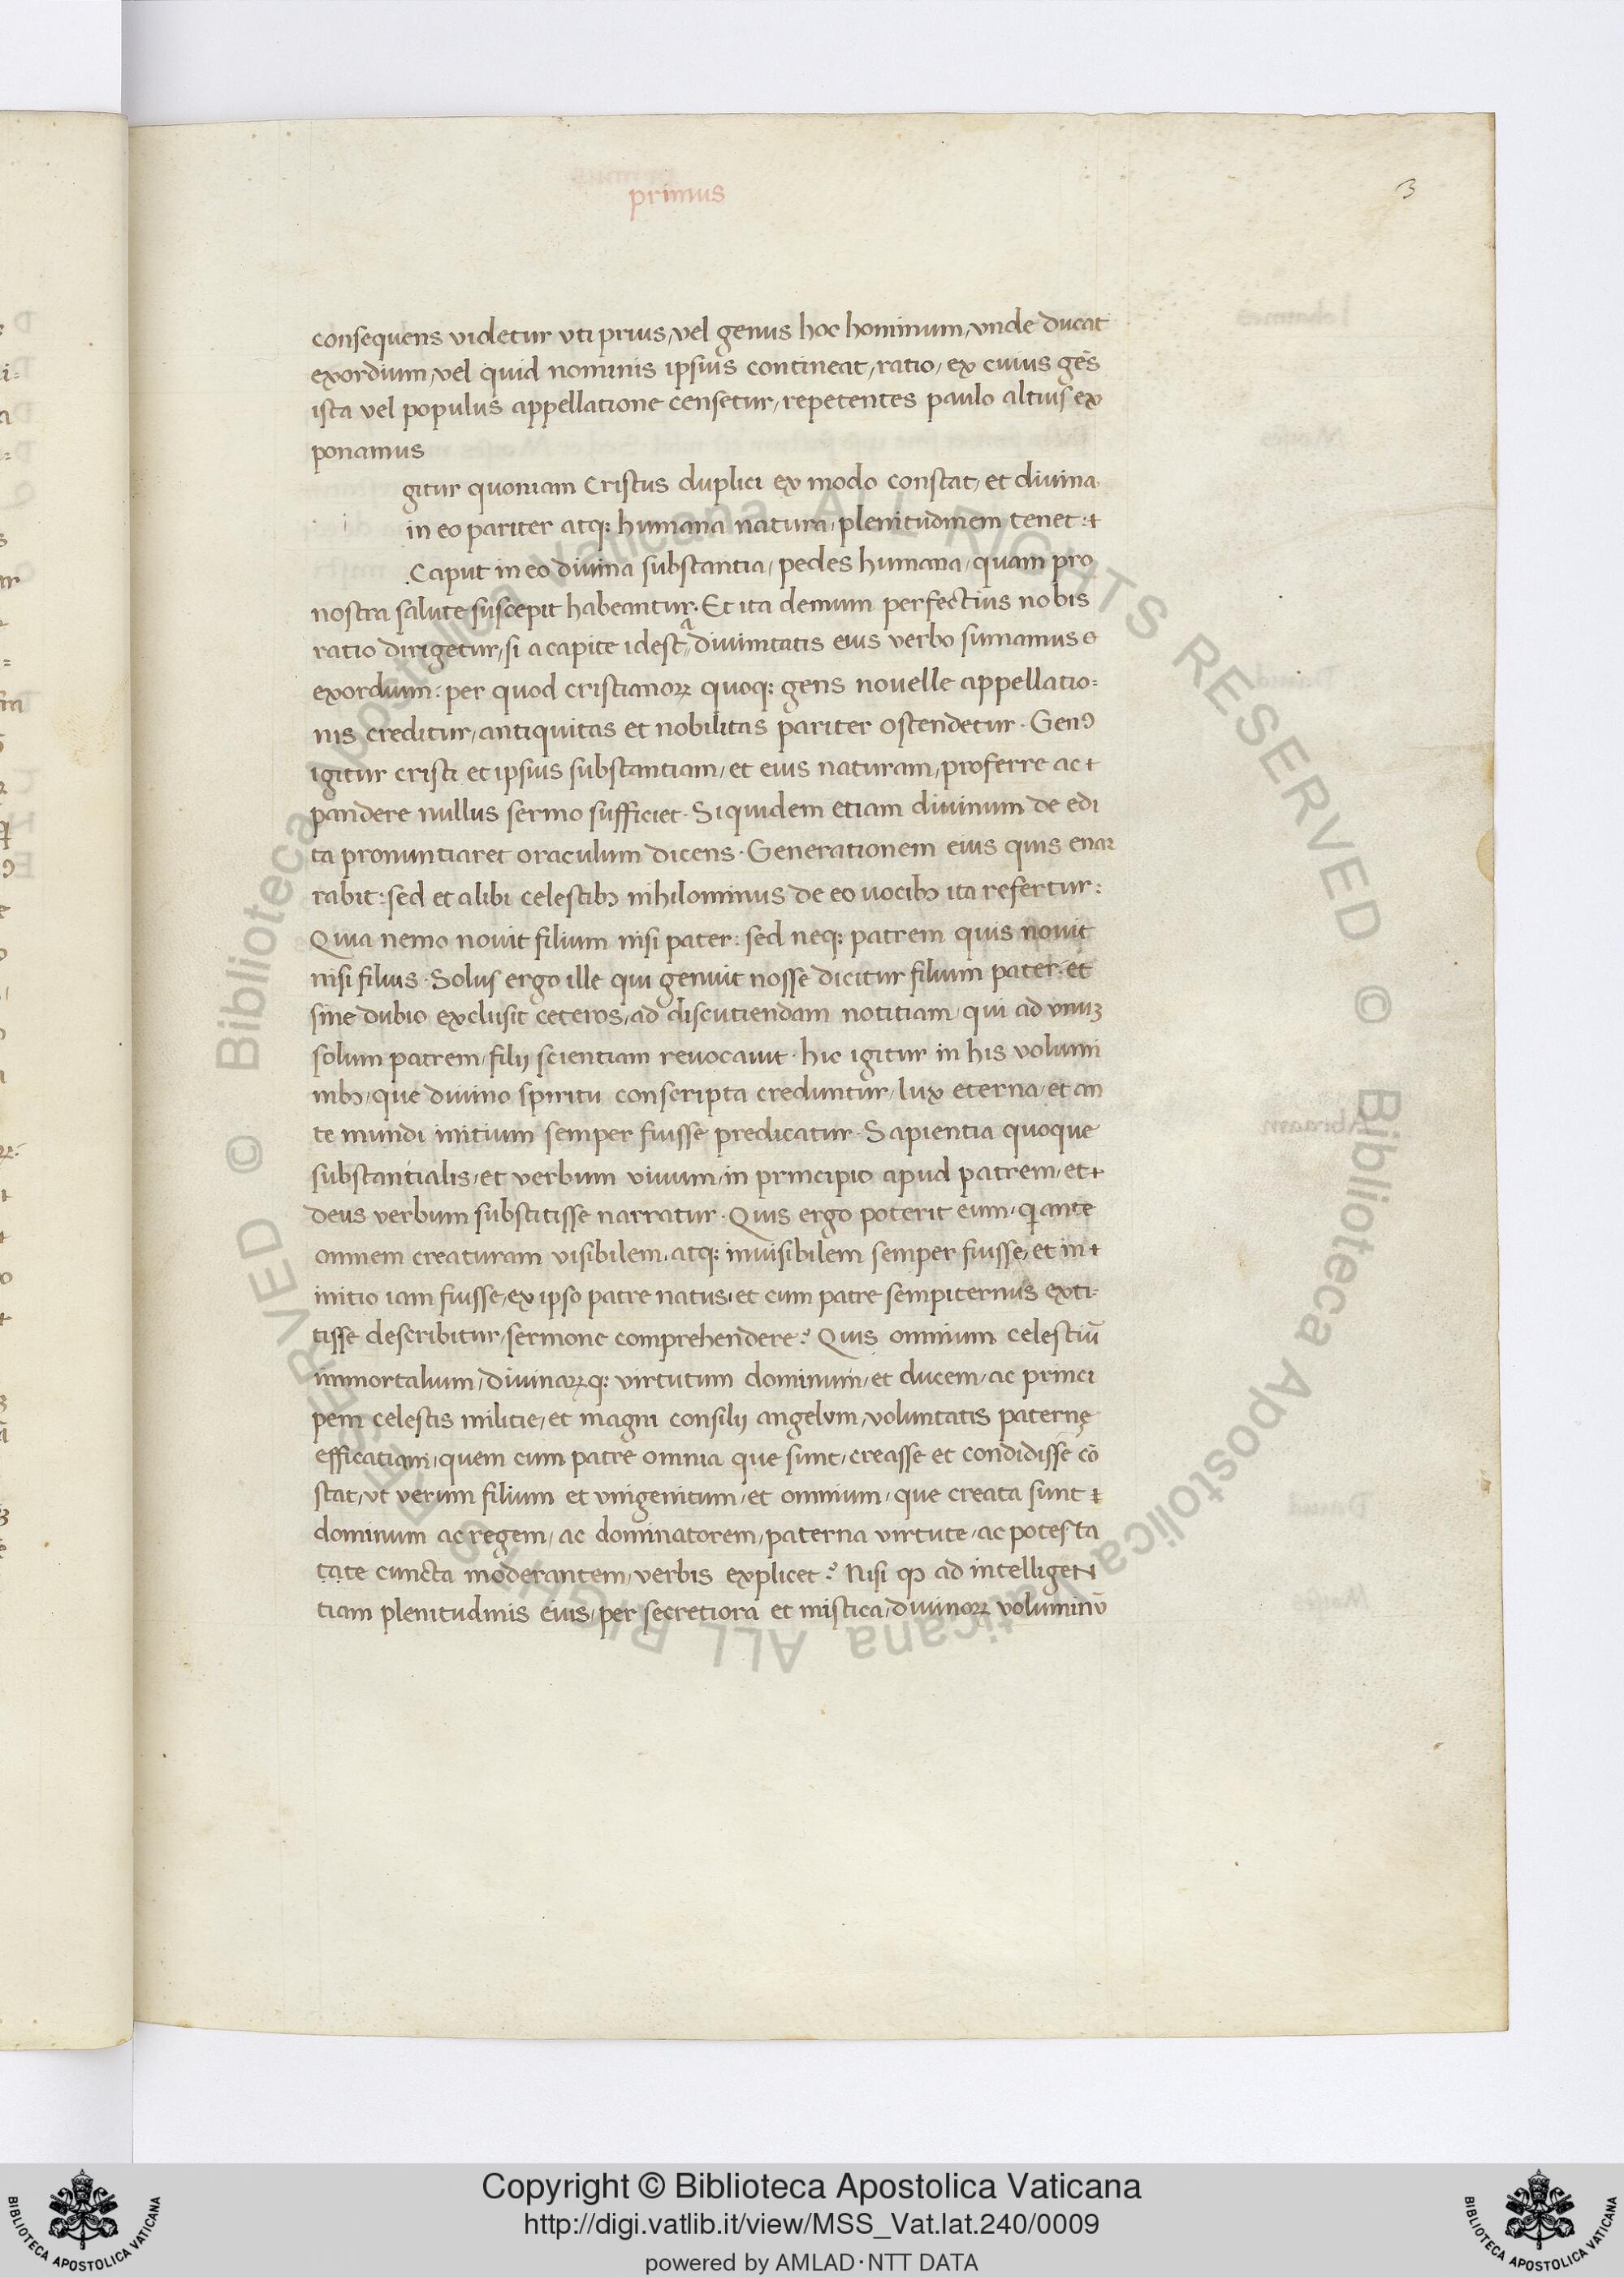 primus
3
consequens videtur vti prius, vel genus hoc hominum, vnde ducat
exordium, vel quid nominis ipsius contineat, ratio, ex cuius gēs
ista vel populus appellatione censetur, repetentes paulo altius ex
ponamus
gitur quoniam Cristus duplici ex modo constat, et diuina
i
in eo pariter atq: humana natura, plenitudinem tenet: +
Caput in eo diuina substantia, pedes humana, quam pro
nostra salute suscepit habeantur. Et ita demum perfectius nobis
ratio dirigetur, si a capite idest, a diuinitatis eius verbo sumamus
exordium: per quod cristianoꝝ quoq: gens nouelle appellatio=
nis creditur, antiquitas et nobilitas pariter ostendetur. Genꝯ
igitur cristi et ipsius substantiam, et eius naturam, proferre ac +
pandere nullus sermo sufficiet. Siquidem etiam diuinum de edi
ta pronuntiaret oraculum dicens. Generationem eius quis enar
rabit: sed et alibi celestibꝫ nihilominus de eo uocibꝫ ita refertur:
Quia nemo nouit filium nisi pater: sed neq: patrem quis nouit
nisi filius. Solus ergo ille qui genuit nosse dicitur filium pater: et
sine dubio exclusit ceteros, ad discutiendam notitiam, qui ad vnuꝫ
solum patrem, filij scientiam reuocauit. hic igitur in his volumi
nibꝫ, que diuino spiritu conscripta creduntur, lux eterna, et an
te mundi initium semper fuisse predicatur. Sapientia quoque
substantialis, et verbum viuum, in principio apud patrem, et +
deus verbum substitisse narratur. Quis ergo poterit eum, ꝗ ante
omnem creaturam visibilem, atq: inuisibilem semper fuisse, et in +
initio iam fuisse, ex ipso patre natus, et cum patre sempiternus exti=
tisse describitur, sermone comprehendere? Quis omnium celestiū
immortalium, diuinaꝝq: virtutum dominum, et ducem, ac princi
pem celestis militie, et magni consilij angelvm, voluntatis paternę
efficatiam, quem cum patre omnia que sunt, creasse et condidisse cō
stat, vt verum filium et vnigenitum, et omnium, que creata sunt +
dominum ac regem, ac dominatorem, paterna virtute, ac potesta
tate cuncta moderantem, verbis explicet? Nisi ꝙ ad intelligen
tiam plenitudinis eius, per secretiora et mistica, diuinoꝝ voluminū
© Biblioteca Apostolica Vaticana ALL RIGHTS RESERVED © Biblioteca Apostolica Vaticana ALL RIGHTS RESERVED
Copyright © Biblioteca Apostolica Vaticana
http://digi.vatlib.it/view/MSS_Vat.lat.240/0009
powered by AMLAD·NTT DATA
BIBLIOTECA APOSTOLICA VATICANA
BIBLIOTECA APOSTOLICA VATICANA